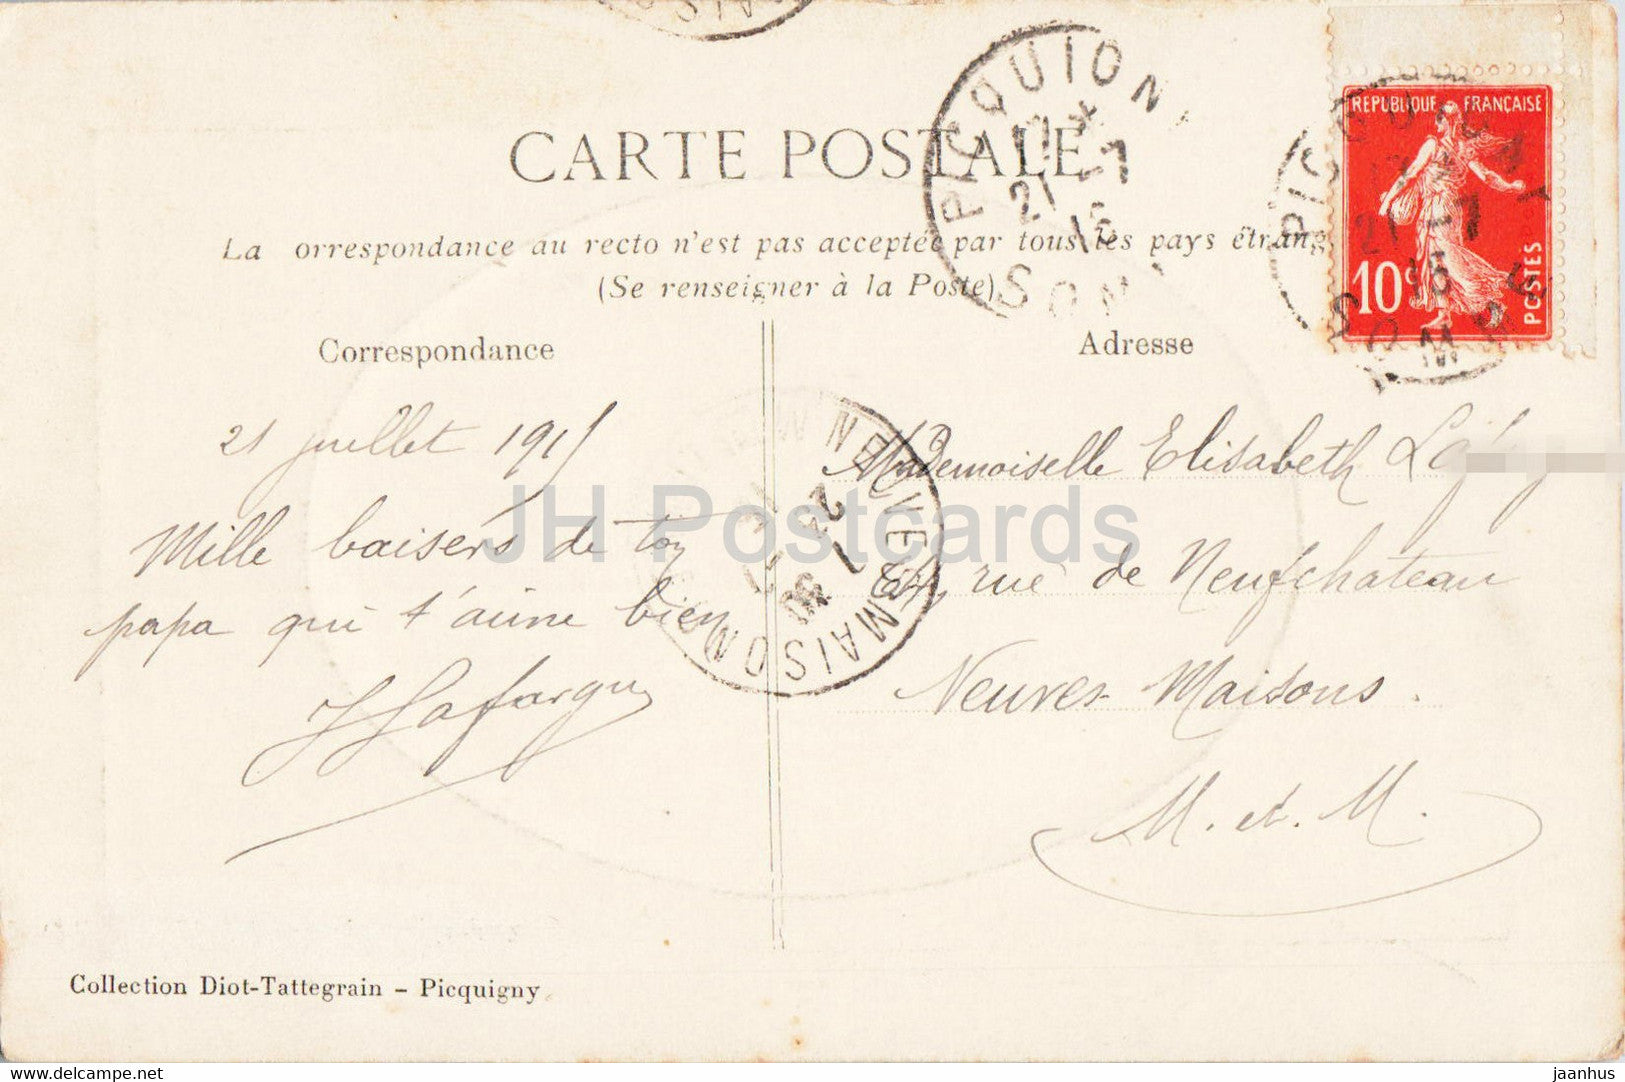 CARTE POSTALE
La orrespondance au recto n'est pas acceptée par tous les pays étrang
(Se renseigner à la Poste)
REPUBLIQUE FRANÇAISE
10c
POSTES
PICQUIGN
21 -7
15
SOM
Correspondance
Adresse
21 juillet 1915
Mille baisers de ton
papa qui t'aime bien
Mademoiselle Elisabeth
rue de Neufchateau
Neuves-Maisons.
M. et. M.
NEUVES MAISONS
24 -7
JH Postcards
Collection Diot-Tattegrain - Picquigny
delcampe.net
jaanhus